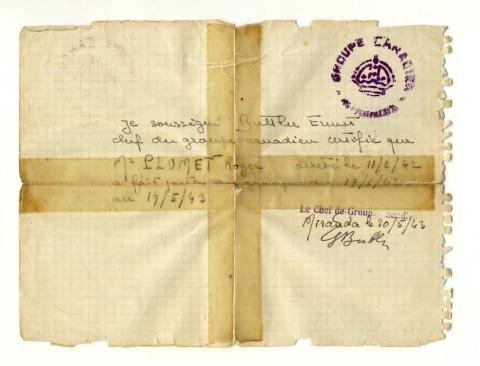 GROUPE CANADIEN
Je soussigné Buttler Ernest
chef du groupe canadien certifie que
Mr PLUMET Roger arrêté le 11/2/42
a fait partie 19/6/42
au 19/5/43
Le Chef de Groupe
Miranda le 20/5/43